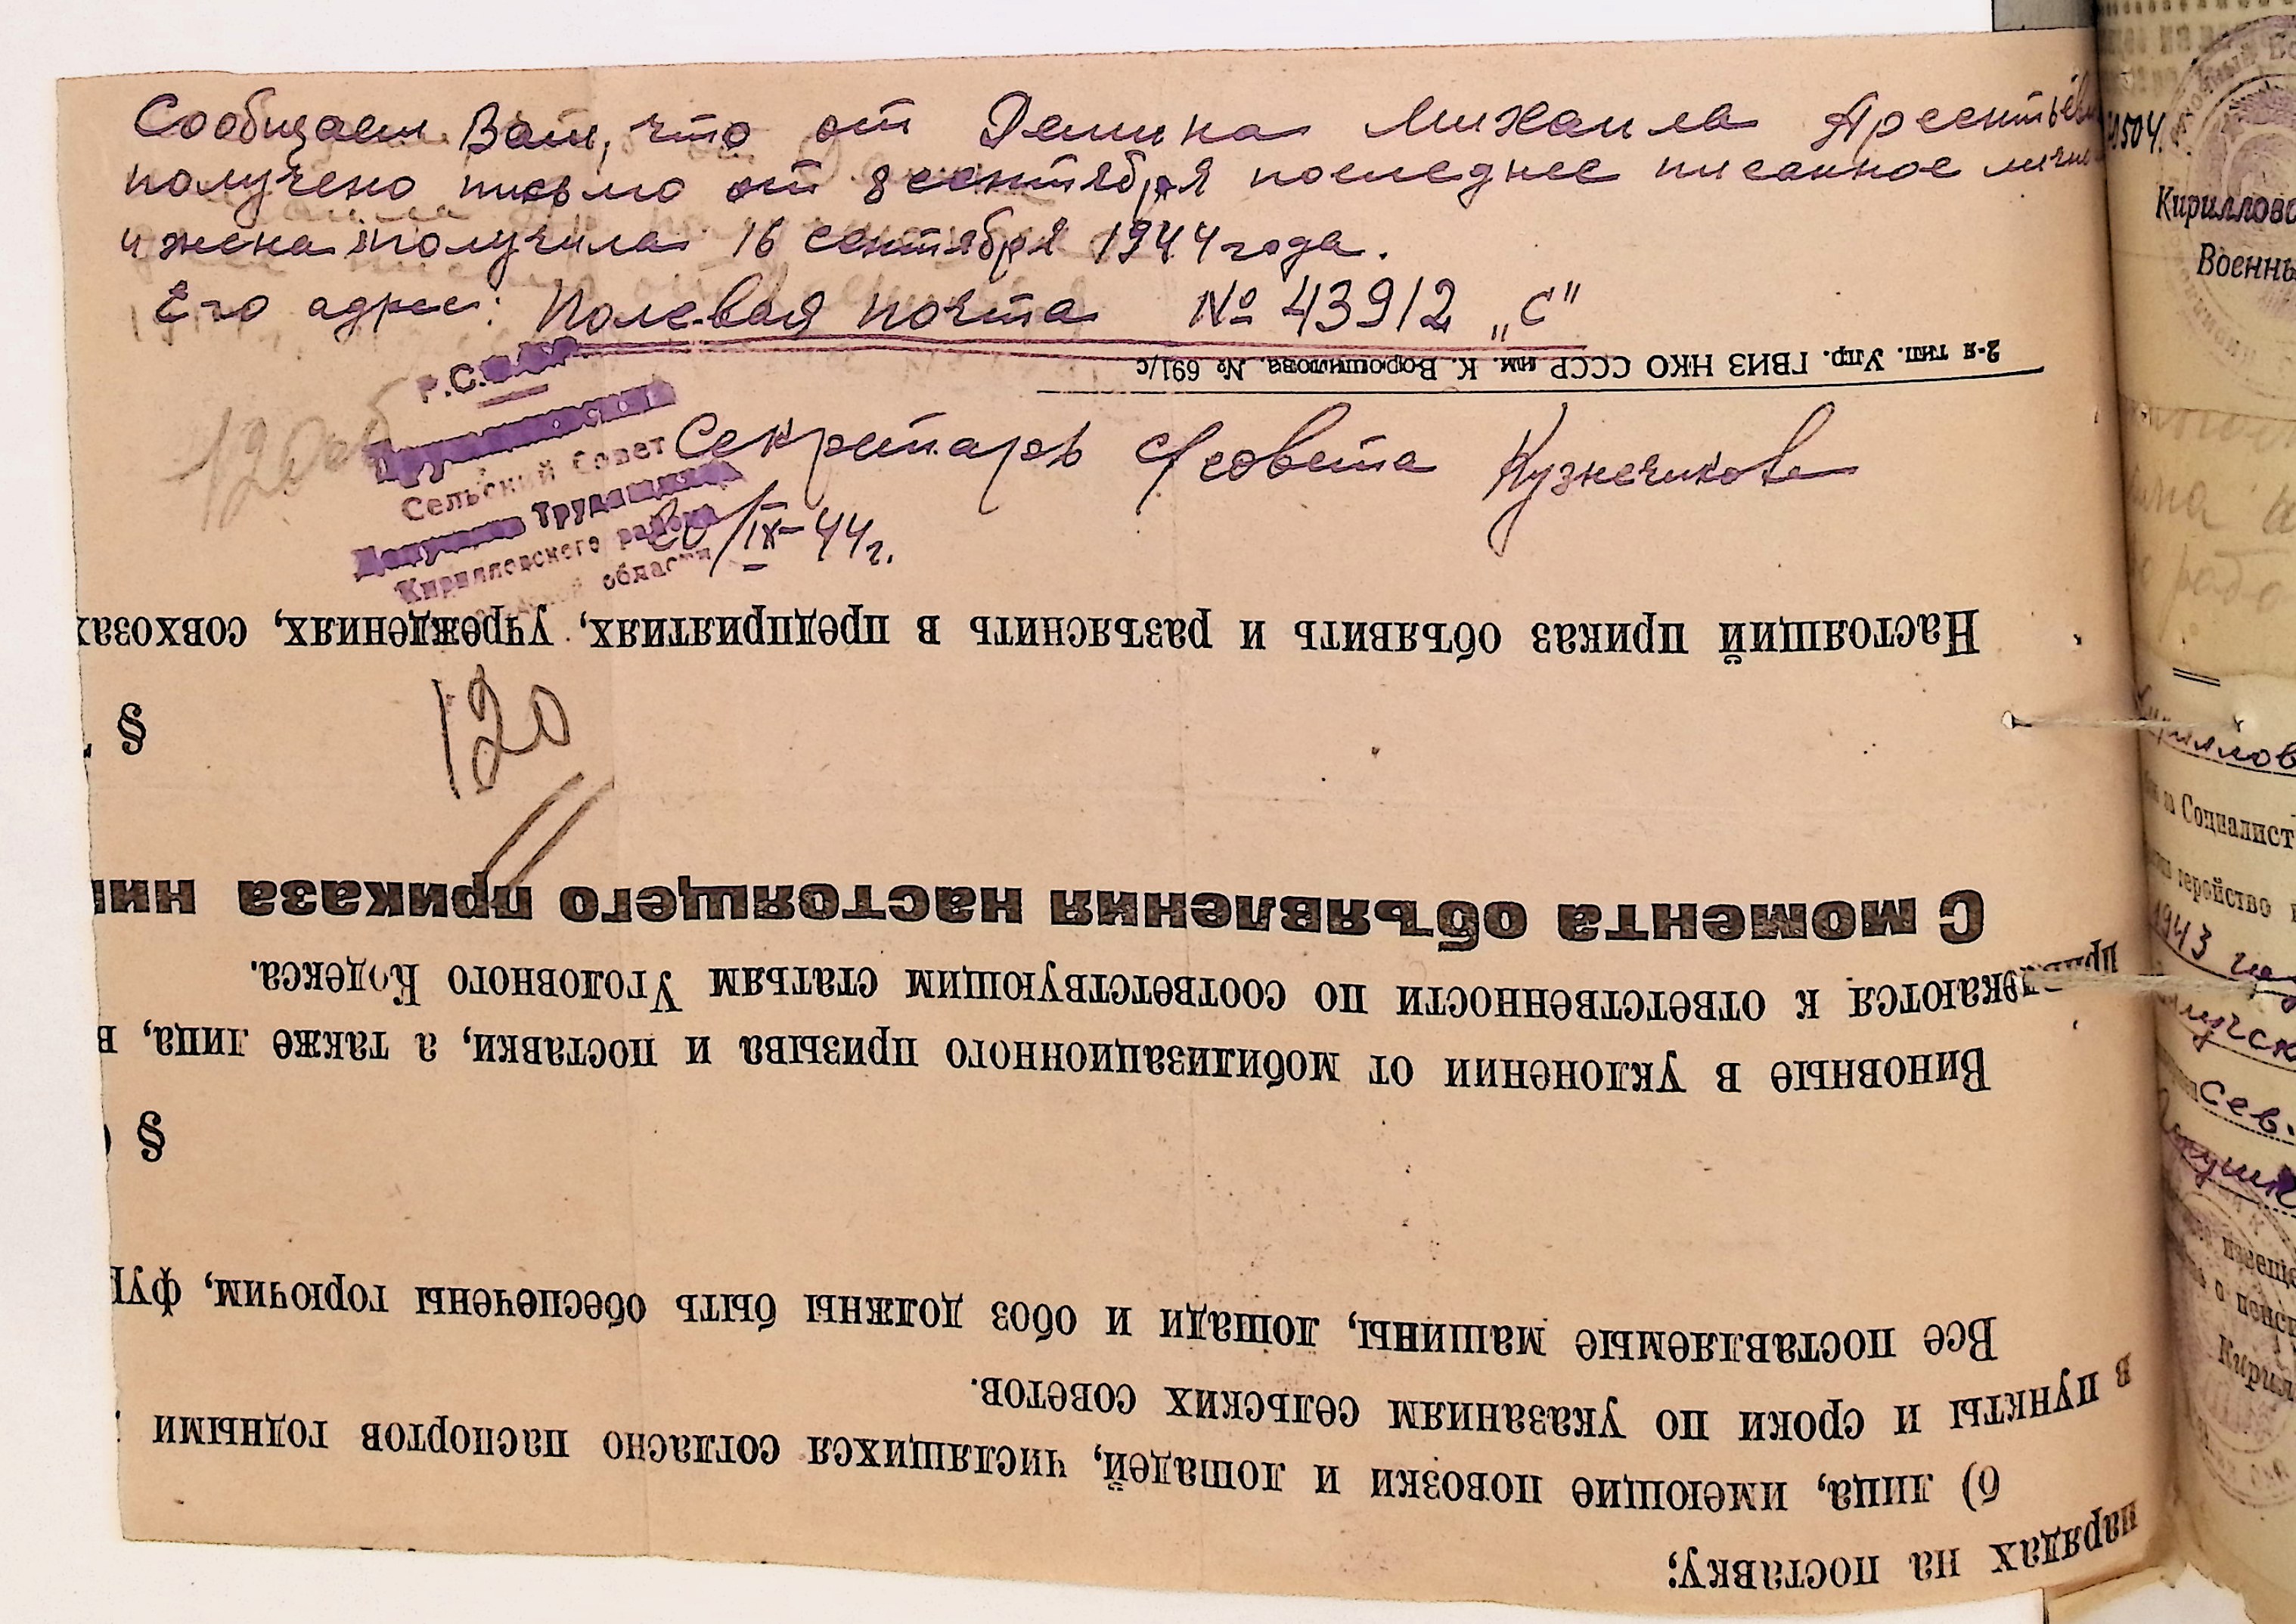 Сообщаем Вам, что от Демина Михаила Арсентьеви
получено письмо от 8 сентября последнее писанное лично
и жена получила 16 сентября 1944 года.
Его адрес: Полевая почта № 43912 „С"
2-я тип. Упр. ГВИЗ НКО СССР им. К. Ворошилова. № 691/с
Р.С.Ф.С.Р.
Сельский Совет
Депутатов Трудящихся
Кирилловского района
области
Секретарь с/совета Кузнечикова
20/IX-44г.
120
Настоящий приказ объявить и разъяснить в предприятиях, учреждениях, совхозах
§
120
С момента объявления настоящего приказа ник
привлекаются к ответственности по соответствующим статьям Уголовного Кодекса.
Виновные в уклонении от мобилизационного призыва и поставки, а также лица, в
§
Все поставляемые машины, лошади и обоз должны быть обеспечены горючим, фур
в пункты и сроки по указаниям сельских советов.
б) лица, имеющие повозки и лошадей, числящихся согласно паспортов годными
нарядах на поставку;
504.
Кириллово
Военны
Социалист
геройство
1943
Сев.